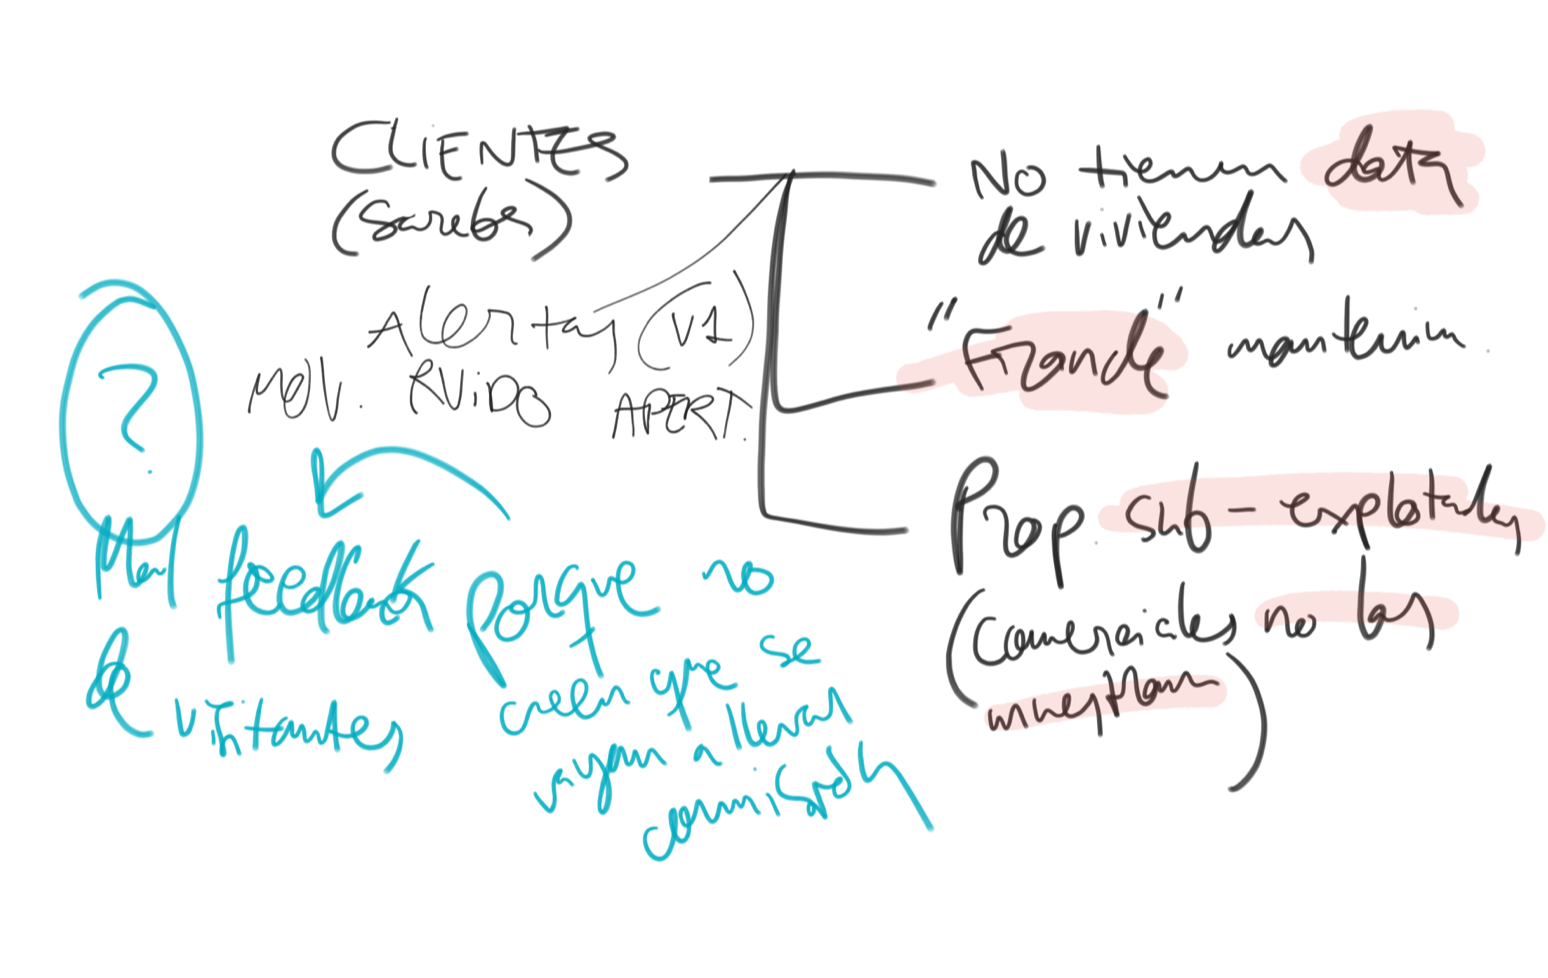 CLIENTES
(Sarebs)
Alertas (V1)
MOV. RUiDO APERT.
No tienen data
de viviendas
"Fraude" mantenim.
Prop. sub-explotadas
(Comerciales no las
muestran)
?
Mal feedback
de visitantes
porque no
creen que se
vayan a llevar
comisión